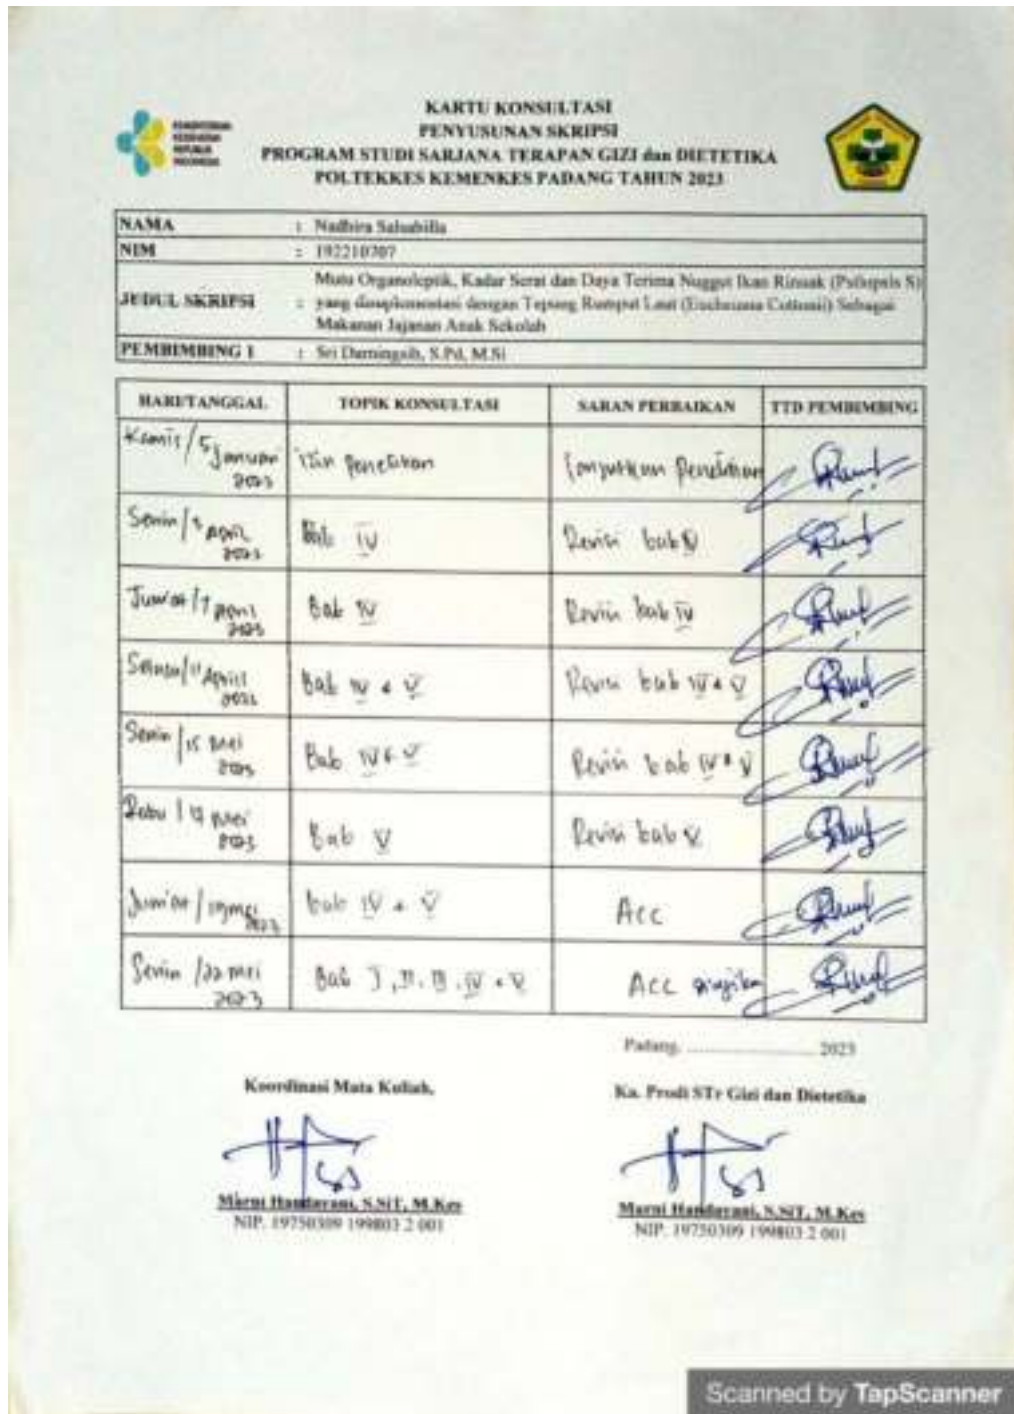 KEMENTERIAN
KESEHATAN
REPUBLIK
INDONESIA
KARTU KONSULTASI
PENYUSUNAN SKRIPSI
PROGRAM STUDI SARJANA TERAPAN GIZI dan DIETETIKA
POLTEKKES KEMENKES PADANG TAHUN 2023
NAMA : Nadhira Salsabilla
NIM : 192210707
Mutu Organoleptik, Kadar Serat dan Daya Terima Nuggut Ikan Rinuak (Psilopsis S)
JUDUL SKRIPSI : yang disuplementasi dengan Tepung Rumput Laut (Eucheuma Cottonii) Sebagai
Makanan Jajanan Anak Sekolah
PEMBIMBING 1 : Sri Darningsih, S.Pd, M.Si
HARI/TANGGAL TOPIK KONSULTASI SARAN PERBAIKAN TTD PEMBIMBING
Kamis / 5 Januari 2023 izin penelitian Lanjutkan Penelitian
Senin / April 2023 Bab IV Revisi bab
Jum'at / 7 April 2023 Bab IV Revisi bab IV
Selasa / 11 April 2023 Bab IV & V Revisi bab IV & V
Senin / 15 Mei 2023 Bab IV & V Revisi bab IV & V
Rabu / 17 Mei 2023 Bab V Revisi bab V
Jum'at / 19 Mei 2023 bab IV & V Acc
Senin / 22 Mei 2023 Bab I, II, III, IV & V Acc diujikan
Padang, .................................... 2023
Koordinasi Mata Kuliah, Ka. Prodi STr Gizi dan Dietetika
Marni Handayani, S.SiT, M.Kes Marni Handayani, S.SiT, M.Kes
NIP. 19750309 199803 2 001 NIP. 19750309 199803 2 001
Scanned by TapScanner